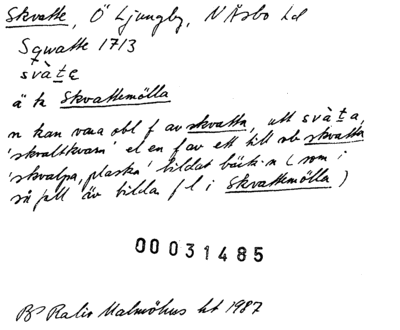 Skvatte, Ö Ljungby, N Åsbo hd
Sqwatte 1713
svàtɛ
ä tr Skvattemölla
n kan vara obl f av skvatta, utt svàta,
'skvaltkvarn' el en f av ett till vb skvatta
'skvalpa, plaska' bildat bäckn (som i
så fall äv bilda fl i Skvattemölla)
00031485
Malmöhus ht 1987